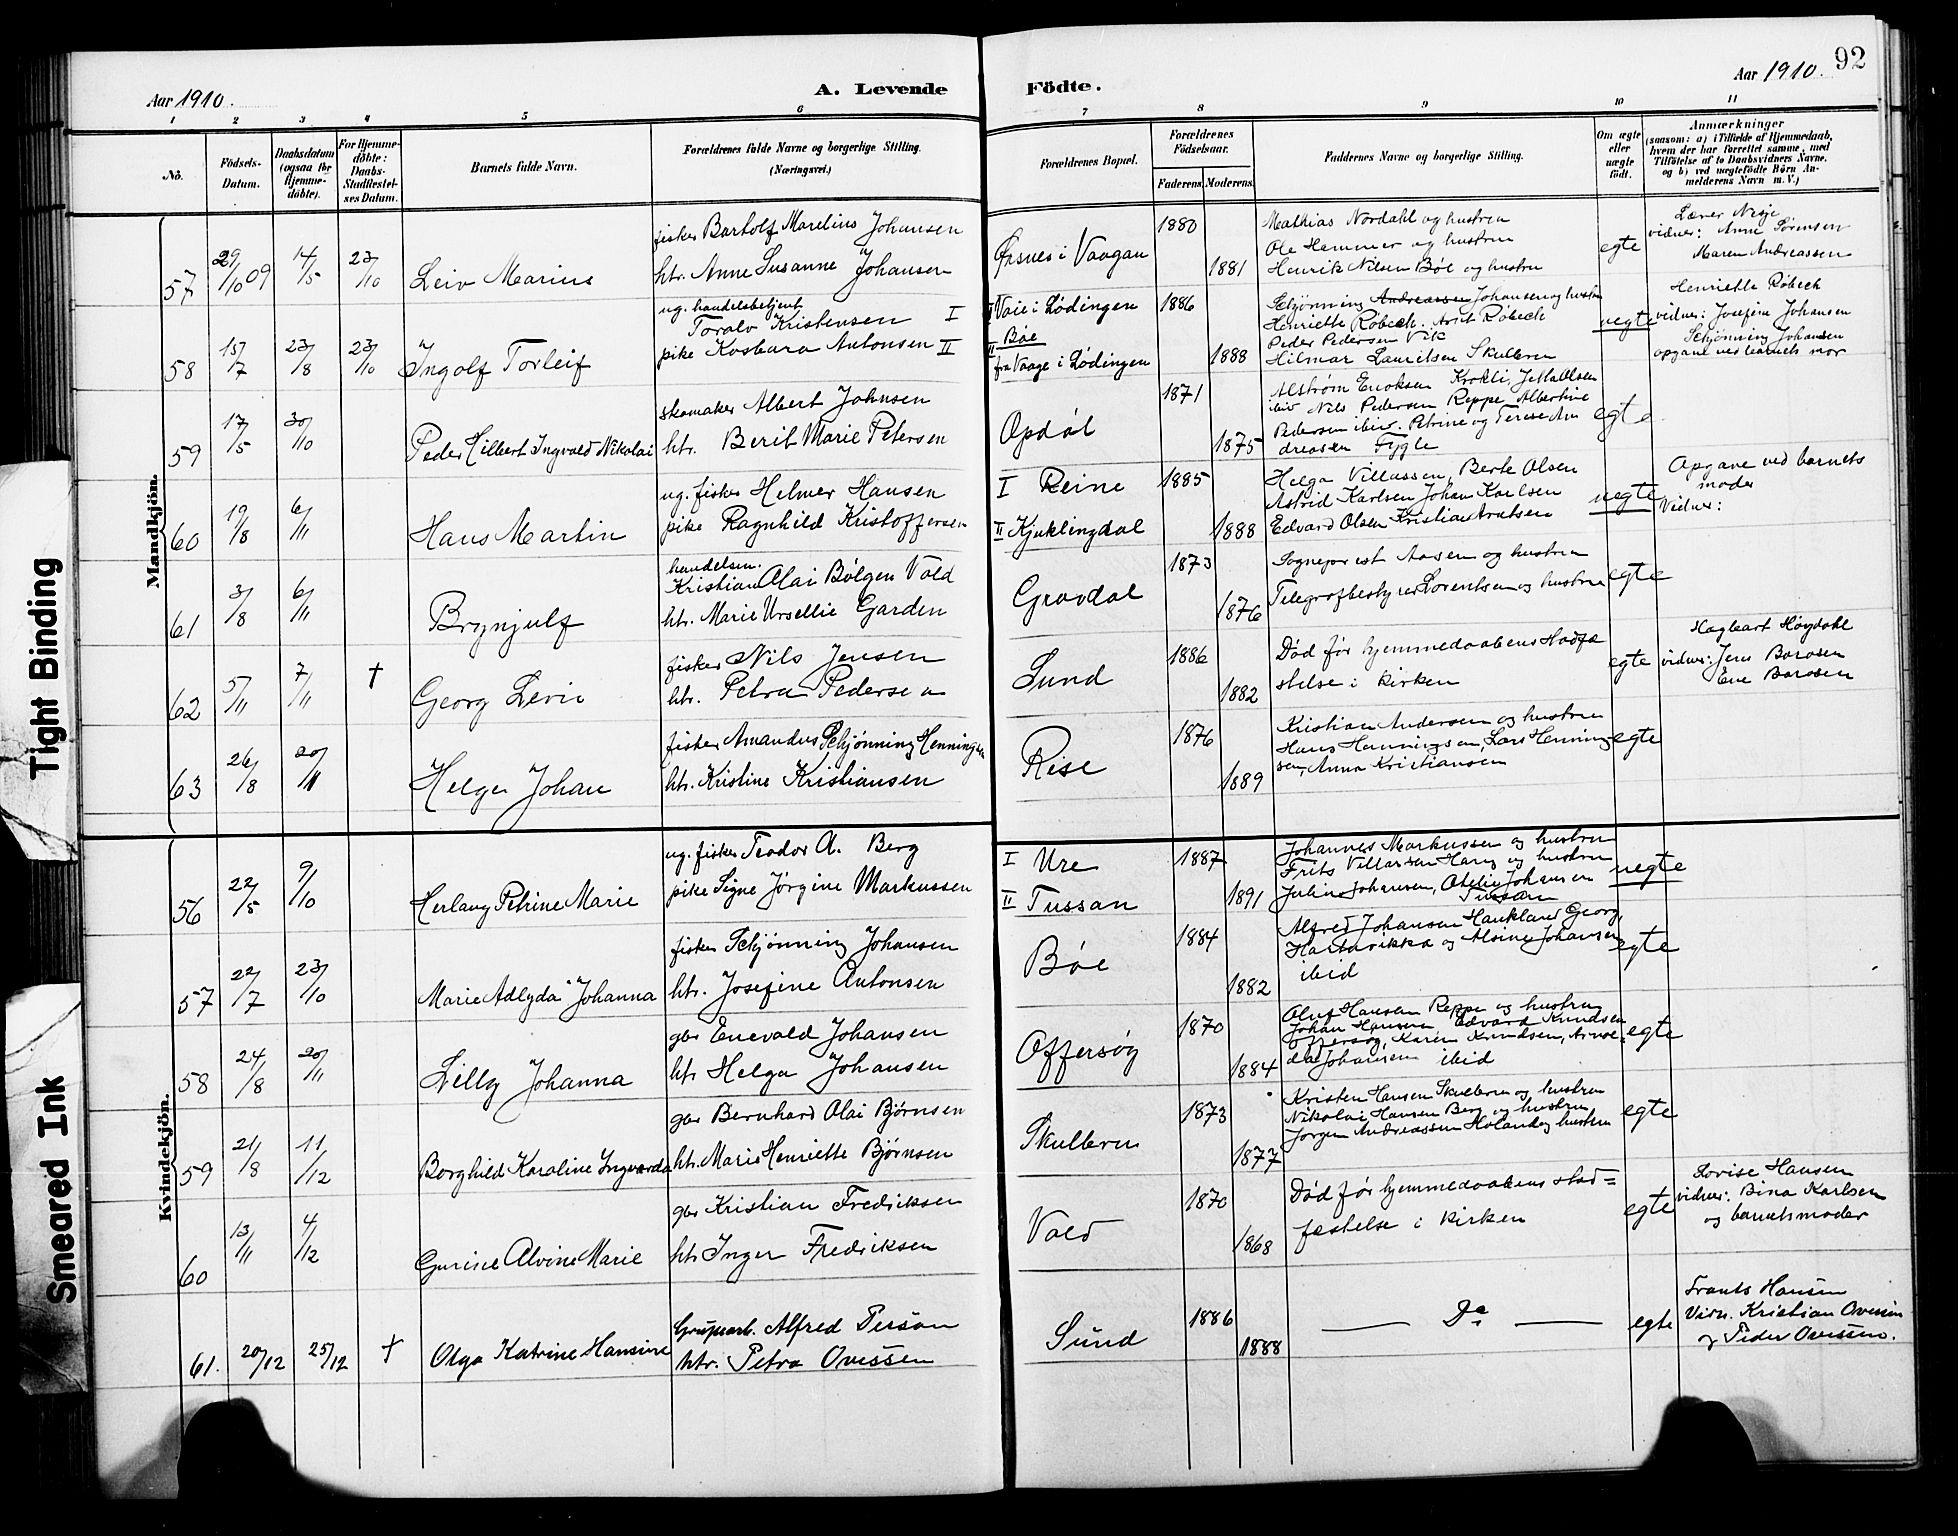 92
Aar 1910.
A. Levende
Födte.
Aar 1910.
1 2 3 4 5 6 7 8 9 10 11
No.
Födsels-Datum.
Daabsdatum (ogsaa for Hjemme-döbte).
For Hjemme-döbte: Daabs-Stadfæstel-ses Datum.
Barnets fulde Navn.
Forældrenes fulde Navne og borgerlige Stilling.
(Næringsvei.)
Forældrenes Bopæl.
Forældrenes Födselsaar.
Faderens. Moderens.
Faddernes Navne og borgerlige Stilling.
Om ægte eller uægte födt.
Anmærkninger
(saasom: a) i Tilfælde af Hjemmedaab, hvem der har forrettet samme, med Tilföielse af to Daabsvidners Navne, og b) ved uægtefödte Börn An-melderens Navn m. V.)
Mandkjön.
57 29/10 09 14/5 23/10 Leiv Marius
fisker Bartolf Marelius Johansen
htr. Anne Susanne Johansen
Ørsnes i Vaagan 1880 1881
Mathias Nordahl og hustru
Ole Hammer og hustru
Henrik Nilsen Bøe og hustru
egte
Lærer Nesje
vidner: Anne Sørensen
Maren Andreassen
58 15/7 23/8 23/10 Ingolf Torleif
ug. handelsbetjent
Toralv Kristensen I
pike Kosbara Antonsen II
I Vaie i Lødingen
II Bøe
fra Vaage i Lødingen
1886 1888
Schjønning Andreassen Johansen og hustru
Henriette Røbeck. Arnt Røbeck
Peder Pedersen Vik
Hilmar Lauritsen Skulbru
uegte
Henriette Røbeck
vidner: Josefine Johansen
Schjønning Johansen
opgave ved barnets mor
59 17/5 30/10 Peder Hilbert Ingvald Nikolai
skomaker Albert Johnsen
htr. Berit Marie Petersen
Opdøl 1871 1875
Alstrøm Enoksen Krokli,
ibid Nils Pedersen Reppe Albertine
Pedersen ibid. Petrine og Terese An
dreasen Fygle
egte
60 19/8 6/11 Hans Martin
ug. fisker Helmer Hansen
pike Ragnhild Kristoffersen
I Reine
II Kjuklingdal
1885 1888
Helga Villassen, Berte Olsen
Astrid Karlsen Johan Karlsen
Edvard Olsen Kristian Arntsen
uegte
Opgave ved barnets
moder
Vidner:
61 3/8 6/11 Brynjulf
handelsm.
Kristian Olai Bølgen Vold
htr. Marie Ursellie Garden
Gravdal 1873 1876
Sogneprest Aasen og hustru
Telegrafbestyrer Lorentsen og hustru
egte
62 5/11 7/11 † Georg Levi
fisker Nils Jensen
htr. Petra Pedersen
Sund 1886 1882
Død før hjemmedaabens stadfæ
stelse i kirken
egte
Hagbart Høydahl
vidner: Jens Barosen
Ene Barosen
63 26/8 20/11 Helge Johan
fisker Amandus Schjønning Henningsen
htr. Kristine Kristiansen
Rise 1876 1889
Kristian Andersen og hustru
Hans Henningsen, Lars Henning
sen, Anna Kristiansen
egte
Kvindekjön.
56 22/5 9/10 Herlaug Petrine Marie
ug. fisker Teodor A. Berg
pike Signe Jørgine Markussen
I Ure
II Tussan
1887 1891
Johannes Markussen og hustru
Frits Villassen Haug og hustru
Julie Johansen, Otelie Johansen
Tussan
uegte
57 22/7 23/10 Marie Adlyda Johanna
fisker Schjønning Johansen
htr. Josefine Antonsen
Bøe 1884 1882
Alfred Johansen Haukland Georg
og Alvine Johansen
ibid
egte
58 24/8 20/11 Lilly Johanna
gbr Enevald Johansen
htr Helga Johansen
Offersøy 1870 1884
Oluf Hansen Reppe og hustru
Johan Hansen Edvard Knudsen
Offersøy, Karen Knudsen, Arnol
da Johansen ibid
egte
59 21/8 11/12 Borghild Karoline Ingvarda
gbr Bernhard Olai Bjørnsen
htr. Marie Henriette Bjørnsen
Skulbru 1873 1877
Kristen Hansen Skulbru og hustru
Nikolai Hansen Berg og hustru
Jørgen Andreassen Holand og hustru
egte
60 13/11 4/12 Gurine Alvine Marie
gbr Kristian Fredriksen
htr Inger Fredriksen
Vold 1870 1868
Død før hjemmedaabens stad=
festelse i kirken
egte
Lovise Hansen
vidner: Bina Karlsen
og barnets moder
61. 20/12 25/12 † Olga Katrine Hansine
Grubearb. Alfred Person
htr. Petra Ovessen
Sund 1886 1888
— Do —
egte
Frants Hansen
Vidn. Kristian Ovessen
og Peder Ovessen.
Tight Binding
Smeared Ink